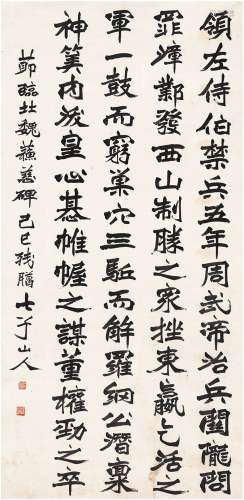 領左侍伯禁兵五年周武帝治兵關隴問
罪漳鄴發西山制勝之眾挫東嬴乞活之
軍一鼓而窮巢穴三駈而解羅網公潛稟
神筭內發皇心基帷幄之謀董權勁之卒
節臨北魏蘇慈碑己巳殘臘七十山人